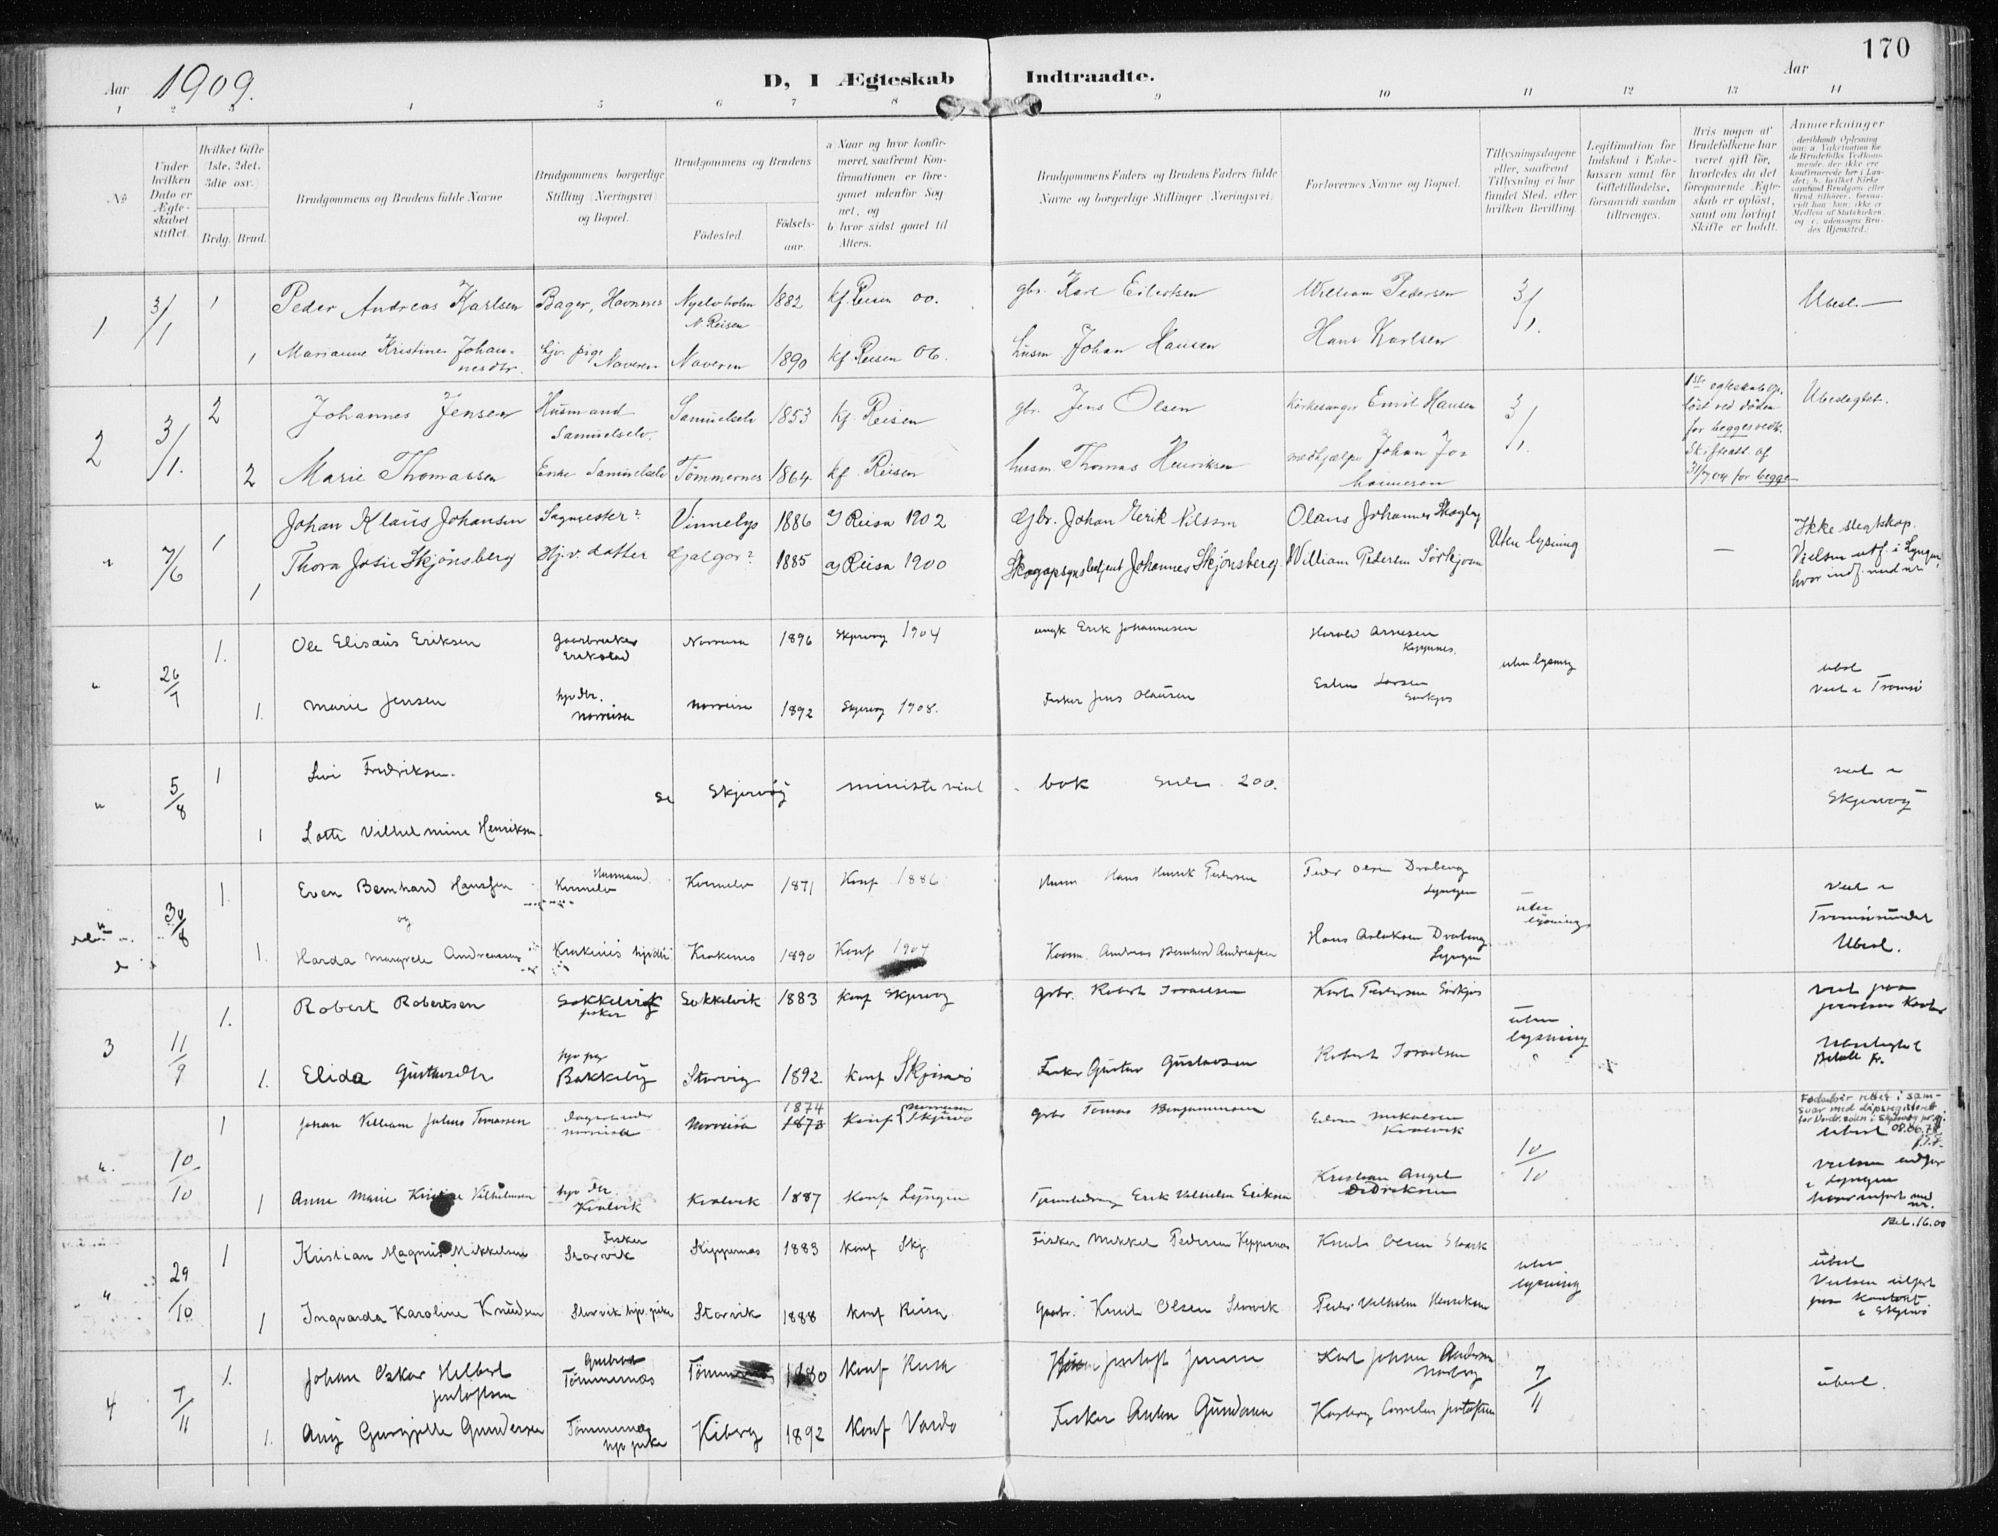 170
Aar 1909.
D, I Ægteskab Indtraadte.
Aar
1 2 3 4 5 6 7 8 9 10 11 12 13 14
No
Under hvilken Dato er Ægteskabet stiftet.
Hvilket Gifte (1ste, 2det. 3die osv.)
Brdg. Brud.
Brudgommens og Brudens fulde Navne
Brudgommens borgerlige Stilling (Næringsvei) og Bopæl.
Brudgommens og Brudens
Fødested.
Fødselsaar.
a Naar og hvor konfirmeret, saafremt Konfirmationen er foregaaet udenfor Sognet, og
b hvor sidst gaaet til Alters.
Brudgommens Faders og Brudens Faders fulde Navne og borgerlige Stillinger (Næringsvei).
Forlovernes Navne og Bopæl.
Tillysningsdagene eller, saafremt Tillysning ei har fundet Sted, efter hvilken Bevilling.
Legitimation for Indskud i Enkekassen samt for Giftetilladelse, forsaavidt saadan tiltrænges.
Hvis nogen af Brudefolkene har været gift før, hvorledes da det foregaaende Ægteskab er opløst, samt om lovligt Skifte er holdt.
Anmærkninger
1 3/1 1 Peder Andreas Karlsen Bager, Havnnes Nyelvholm N. Reisen 1882 kf. Reisen 00. gbr. Karl Eilertsen William Pedersen 3/1. Ubesl.
1 Marianne Kristine Johannesdtr. hjv. pige Naveren Naveren 1890 kf. Reisen 06. husm. Johan Hansen Hans Karlsen
2 3/1. 2 Johannes Jensen Husmand Samuelselv. Samuelselv 1853 kf Reisen gbr. Jens Olsen Kirkesanger Emil Hansen 3/1. 1ste egteskab opløst ved døden for begges vedk. Skifteatt af for begge Ubeslegtet.
2 Marie Thomassen Enke Samuelselv Tømmernes 1864 kf Reisen husm Thomas Henriksen medhjælper Johan Johannesen
" 7/6 1 Johan Klaus Johansen Sagmester? Vinnelys 1886 Reisa 1902 Gbr. Johan Erik Nilsen Olaus Johannes Skogly Uten lysning — Ikke slegtskap. Vielsen utf. i Lyngen, hvor indf. under nr
1 Thora Josie Skjønsberg Hj.v. datter Gjalgor? 1885 Reisa 1900 Skogopsynsbetjent Johannes Skjønsberg William Pedersen Sørkjosen
" 26/7 1. Ole Elisæus Eriksen Gaarbruker Erikstad Norreisa 1896 Skjervøy 1904 Erik Johannesen Harald Arnesen Keppenes. uten lysning ubesl viet i Tromsø
1. Marie Jensen hjv. dtr. Norreisa Norreisa 1892 Skjervøy 1908. Fisker Jens Olausen Larsen Sørkjos
" 5/8 1 Levi Fredriksen. Se Skjervøy ministerial bok side 200. viet i Skjervøy
1 Lotte Vilhelmine Henriksen.
" 30/8 1. Even Bernhard Hanssen Husmand Kvenelv Kvenelv 1871 Konf 1886 Husm Hans Henrik Pedersen Peder Olsen Draberg Lyngen uten lysning Viet i Tromsøsundet Ubesl.
og
1. Harda Margrete Andreassen Krakenes hjv dtr Krakenes 1890 Konf 1904 Andreas Bernhard Andreassen Hans Aslaksen Draberg Lyngen
3 11/9 1. Robert Robertsen Sokkelvik fisker Sokkelvik 1883 Konf Skjervøy Grbr. Robert Israelsen Karl Pedersen Sørkjos uten lysning viet paa prestens Kontor
1. Elida Gustavsdtr hjv pg Bakkeby Storvig 1892. Konf Skjervø Fisker Gustav Gustavsen Robert Israelsen Ubeslegtet Betalt kr.
". 10/10 1 Johan Villiam Julius Tomassen Dagarbeider Norreisa Norreisa 1874 1873 Konf Norreisa Skjervø Grbr Tomas Benjaminsen Edvin Mikalsen Kvalvik 10/10 Fødselsår rettet i samsvar med dåpsregisteret for Nordreisen i Skjervøy pr.gj. ubesl 08.06.7 Vielsen utfør i Lyngen hvor infort under nr.
1 Anne Marie Kristine Vilhelmsen hjv dtr. Kvalvik Kvalvik 1887 Konf Lyngen Erik Vilhelm Eriksen Kristian Angel Didriksen
Bet. 16.00
" 29/10 1 Kristian Magnus Mikkelsen Fisker Storvik Keppenes 1883 Konf Skj. Fisker Mikkel Pedersen Keppenes Knut Olsen Storvik uten lysning ubesl Vielsen utført paa Kontoret i Skjervø
1 Ingvarda Karoline Knudsen Storvik hjv. pike Storvik 1888 Konf Reisa Gaarbr. Knut Olsen Storvik Peder Vilhelm Henriksen
4 7/11 1. Johan Oskar Hilbert Jentoftsen Gaarbruk Tømmernæs Tømmernæs 1880 Konf Reisa Jentoft Jensen Karl Johan Andersen 7/11 ubesl.
1. Gunjelle Gundersen Tømmernæs hjv pike Kiberg 1892 Konf Vardø Fisker Anton Gundersen Cornelius Jentoftsen